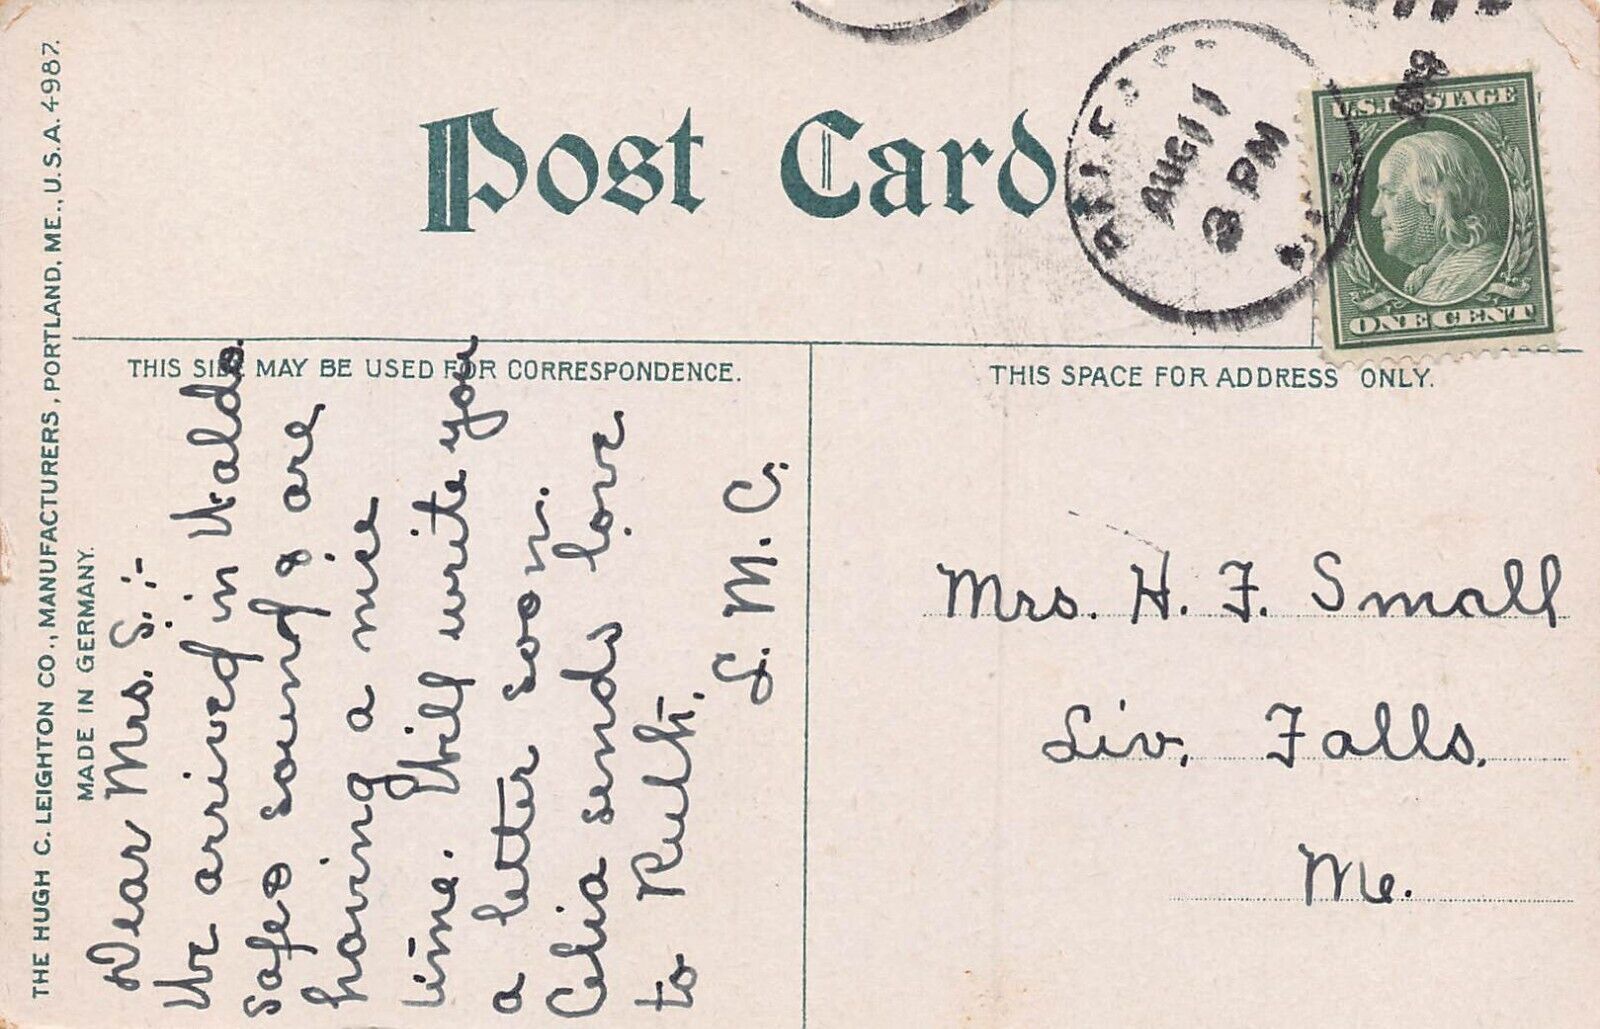 Post Card
AUG 11
PM
U.S. POSTAGE
ONE CENT
THE HUGH C. LEIGHTON CO., MANUFACTURERS, PORTLAND, ME., U.S.A. 4987.
MADE IN GERMANY.
THIS SIDE MAY BE USED FOR CORRESPONDENCE.
Dear Mrs. S.:-
We arrived in Waldo
safe & sound & are
having a nice
time. Will write you
a letter soon.
Celia sends love
to Ruth.
L. M. C.
THIS SPACE FOR ADDRESS ONLY.
Mrs. H. F. Small
Liv. Falls.
Me.